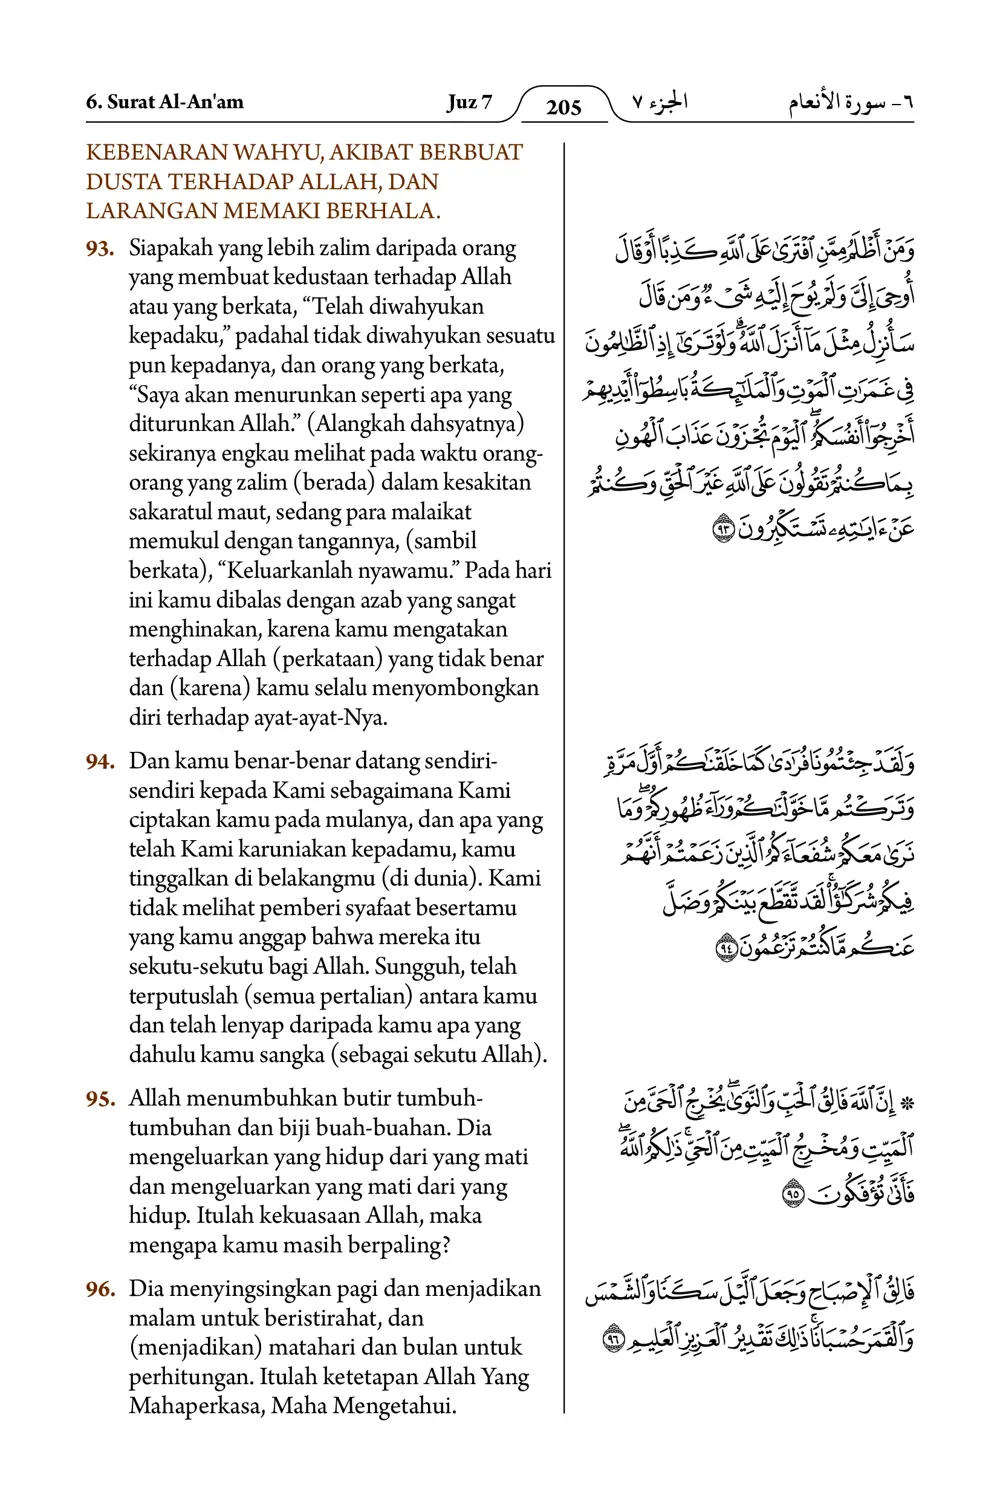 6. Surat Al-An'am
Juz 7
205
الجزء ٧
٦- سورة الأنعام
KEBENARAN WAHYU, AKIBAT BERBUAT
DUSTA TERHADAP ALLAH, DAN
LARANGAN MEMAKI BERHALA.
93. Siapakah yang lebih zalim daripada orang
yang membuat kedustaan terhadap Allah
atau yang berkata, “Telah diwahyukan
kepadaku,” padahal tidak diwahyukan sesuatu
pun kepadanya, dan orang yang berkata,
“Saya akan menurunkan seperti apa yang
diturunkan Allah.” (Alangkah dahsyatnya)
sekiranya engkau melihat pada waktu orang-
orang yang zalim (berada) dalam kesakitan
sakaratul maut, sedang para malaikat
memukul dengan tangannya, (sambil
berkata), “Keluarkanlah nyawamu.” Pada hari
ini kamu dibalas dengan azab yang sangat
menghinakan, karena kamu mengatakan
terhadap Allah (perkataan) yang tidak benar
dan (karena) kamu selalu menyombongkan
diri terhadap ayat-ayat-Nya.
وَمَنْ أَظْلَمُ مِمَّنِ ٱفْتَرَىٰ عَلَى ٱللَّهِ كَذِبًا أَوْ قَالَ
أُوحِىَ إِلَىَّ وَلَمْ يُوحَ إِلَيْهِ شَىْءٌ وَمَن قَالَ
سَأُنزِلُ مِثْلَ مَآ أَنزَلَ ٱللَّهُ ۗ وَلَوْ تَرَىٰٓ إِذِ ٱلظَّٰلِمُونَ
فِى غَمَرَٰتِ ٱلْمَوْتِ وَٱلْمَلَٰٓئِكَةُ بَاسِطُوٓا۟ أَيْدِيهِمْ
أَخْرِجُوٓا۟ أَنفُسَكُمُ ۖ ٱلْيَوْمَ تُجْزَوْنَ عَذَابَ ٱلْهُونِ
بِمَا كُنتُمْ تَقُولُونَ عَلَى ٱللَّهِ غَيْرَ ٱلْحَقِّ وَكُنتُمْ
عَنْ ءَايَٰتِهِۦ تَسْتَكْبِرُونَ ٩٣
94. Dan kamu benar-benar datang sendiri-
sendiri kepada Kami sebagaimana Kami
ciptakan kamu pada mulanya, dan apa yang
telah Kami karuniakan kepadamu, kamu
tinggalkan di belakangmu (di dunia). Kami
tidak melihat pemberi syafaat besertamu
yang kamu anggap bahwa mereka itu
sekutu-sekutu bagi Allah. Sungguh, telah
terputuslah (semua pertalian) antara kamu
dan telah lenyap daripada kamu apa yang
dahulu kamu sangka (sebagai sekutu Allah).
وَلَقَدْ جِئْتُمُونَا فُرَٰدَىٰ كَمَا خَلَقْنَٰكُمْ أَوَّلَ مَرَّةٍ
وَتَرَكْتُم مَّا خَوَّلْنَٰكُمْ وَرَآءَ ظُهُورِكُمْ ۖ وَمَا
نَرَىٰ مَعَكُمْ شُفَعَآءَكُمُ ٱلَّذِينَ زَعَمْتُمْ أَنَّهُمْ
فِيكُمْ شُرَكَٰٓؤُا۟ ۚ لَقَد تَّقَطَّعَ بَيْنَكُمْ وَضَلَّ
عَنكُم مَّا كُنتُمْ تَزْعُمُونَ ٩٤
95. Allah menumbuhkan butir tumbuh-
tumbuhan dan biji buah-buahan. Dia
mengeluarkan yang hidup dari yang mati
dan mengeluarkan yang mati dari yang
hidup. Itulah kekuasaan Allah, maka
mengapa kamu masih berpaling?
۞ إِنَّ ٱللَّهَ فَالِقُ ٱلْحَبِّ وَٱلنَّوَىٰ ۖ يُخْرِجُ ٱلْحَىَّ مِنَ
ٱلْمَيِّتِ وَمُخْرِجُ ٱلْمَيِّتِ مِنَ ٱلْحَىِّ ۚ ذَٰلِكُمُ ٱللَّهُ ۖ
فَأَنَّىٰ تُؤْفَكُونَ ٩٥
96. Dia menyingsingkan pagi dan menjadikan
malam untuk beristirahat, dan
(menjadikan) matahari dan bulan untuk
perhitungan. Itulah ketetapan Allah Yang
Mahaperkasa, Maha Mengetahui.
فَالِقُ ٱلْإِصْبَاحِ وَجَعَلَ ٱلَّيْلَ سَكَنًا وَٱلشَّمْسَ
وَٱلْقَمَرَ حُسْبَانًا ۚ ذَٰلِكَ تَقْدِيرُ ٱلْعَزِيزِ ٱلْعَلِيمِ ٩٦